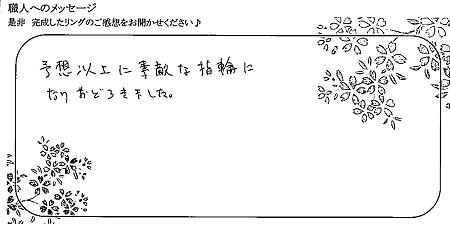 職人へのメッセージ
是非 完成したリングのご感想をお聞かせください♪
予想以上に素敵な指輪に
なりおどろきました。